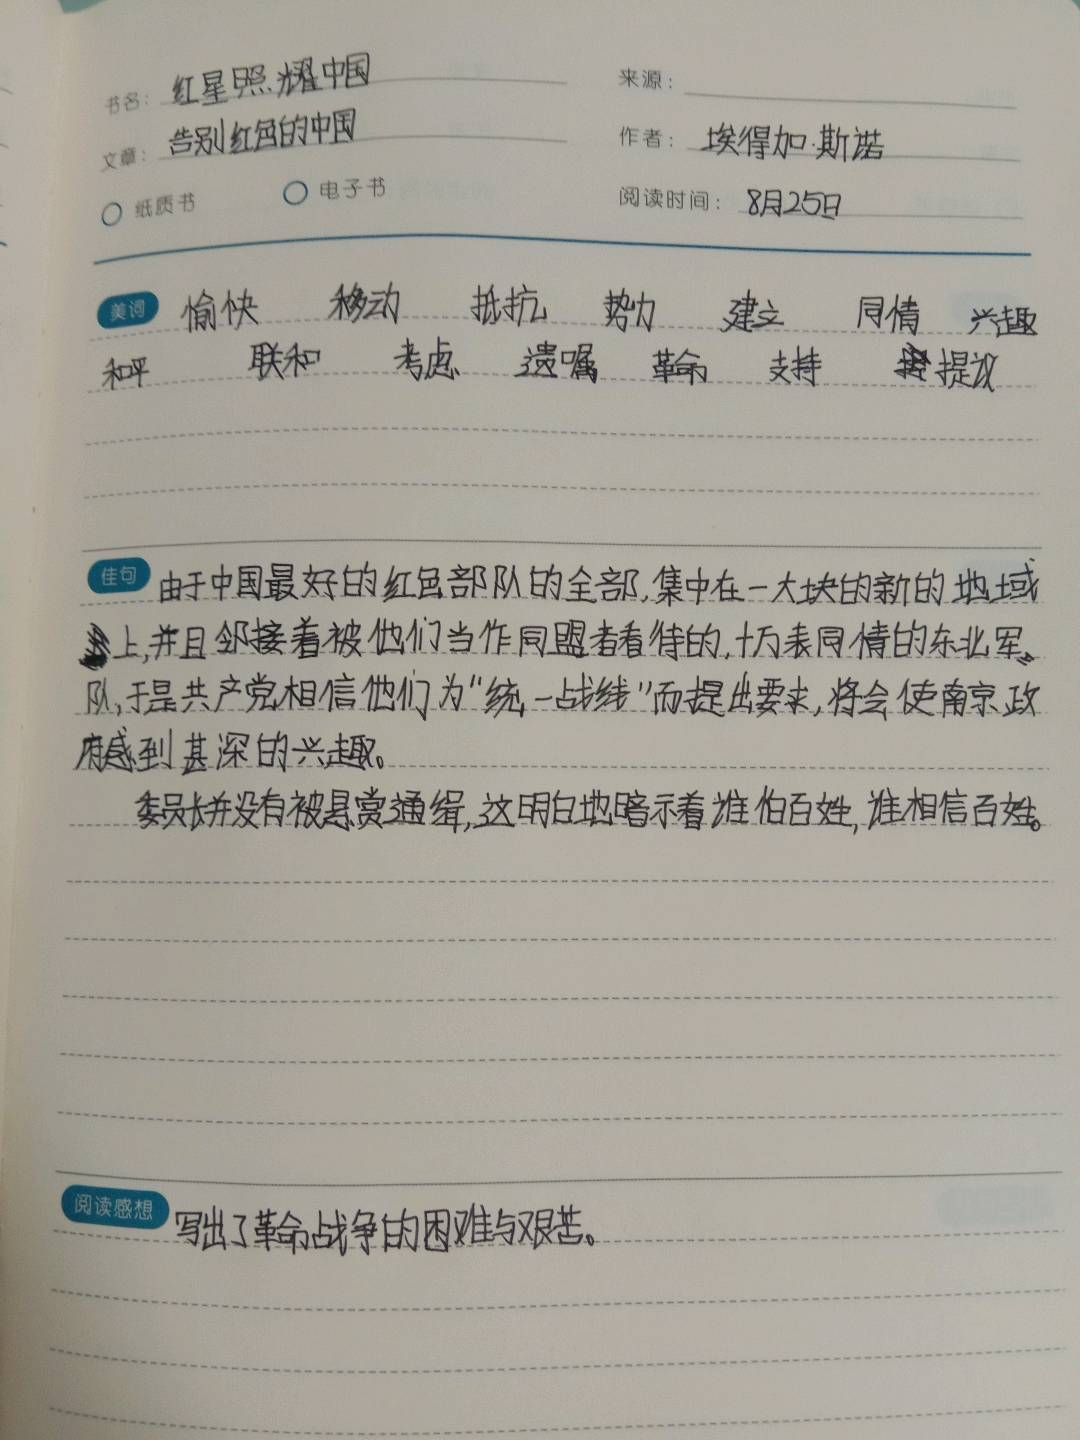 书名：红星照耀中国
来源：
文章：告别红色的中国
作者：埃得加·斯诺
纸质书 电子书
阅读时间：8月25日
美词 愉快 移动 抵抗 势力 建立 同情 兴趣
和平 联和 考虑 遗嘱 革命 支持 提议
佳句 由于中国最好的红色部队的全部，集中在一大块的新的地域
上，并且邻接着被他们当作同盟者看待的，十万表同情的东北军
队，于是共产党相信他们为“统一战线”而提出要求，将会使南京政
府感到甚深的兴趣。
委员长并没有被悬赏通缉，这明白地暗示着谁怕百姓，谁相信百姓。
阅读感想 写出了革命战争的困难与艰苦。